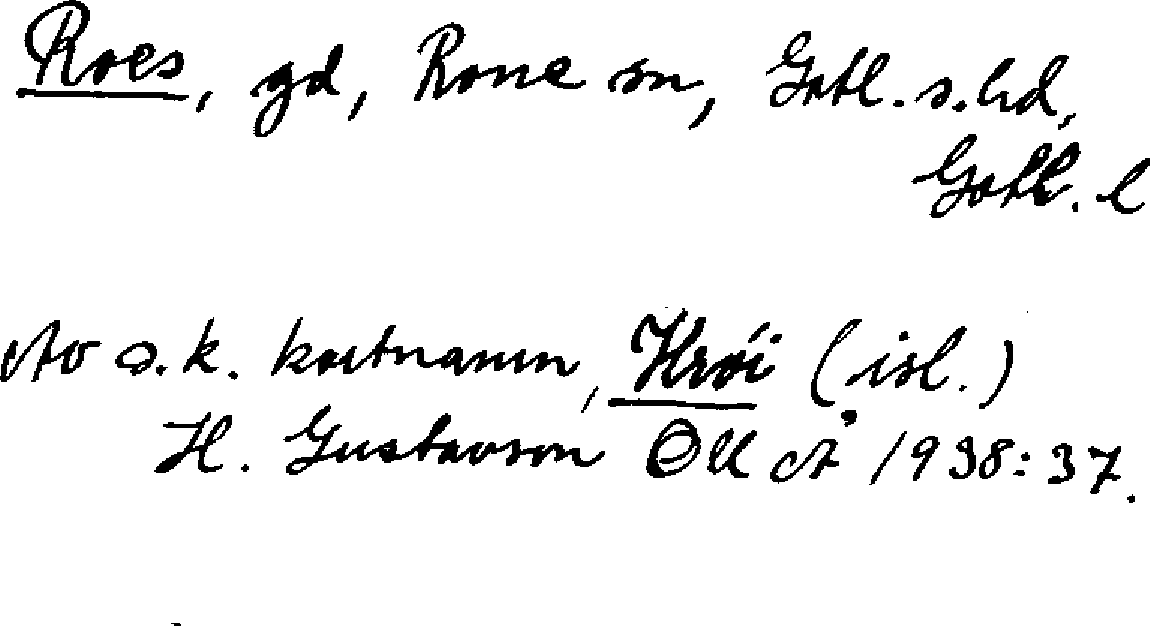 Roes, gd, Rone sn, Gotl. s. hd,
Gotl. l
Av s.k. kortnamn, Hrói (isl.)
H. Gustavson ÅÅ 1938:37.